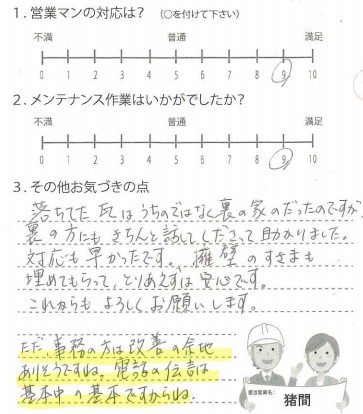 1．営業マンの対応は？ （○を付けて下さい）
不満 普通 満足
0 1 2 3 4 5 6 7 8 9 10
2．メンテナンス作業はいかがでしたか？
不満 普通 満足
0 1 2 3 4 5 6 7 8 9 10
3．その他お気づきの点
落ちてた瓦はうちのではなく裏の家のだったのですが
裏の方にも、きちんと話してくださって助かりました。
対応も早かったです。擁壁のすきまも
埋めてもらって、とりあえずは安心です。
これからもよろしくお願いします。
ただ、事務の方は改善の余地
ありそうですね。電話の伝言は
基本中の基本ですからね。
担当営業名：
猪間